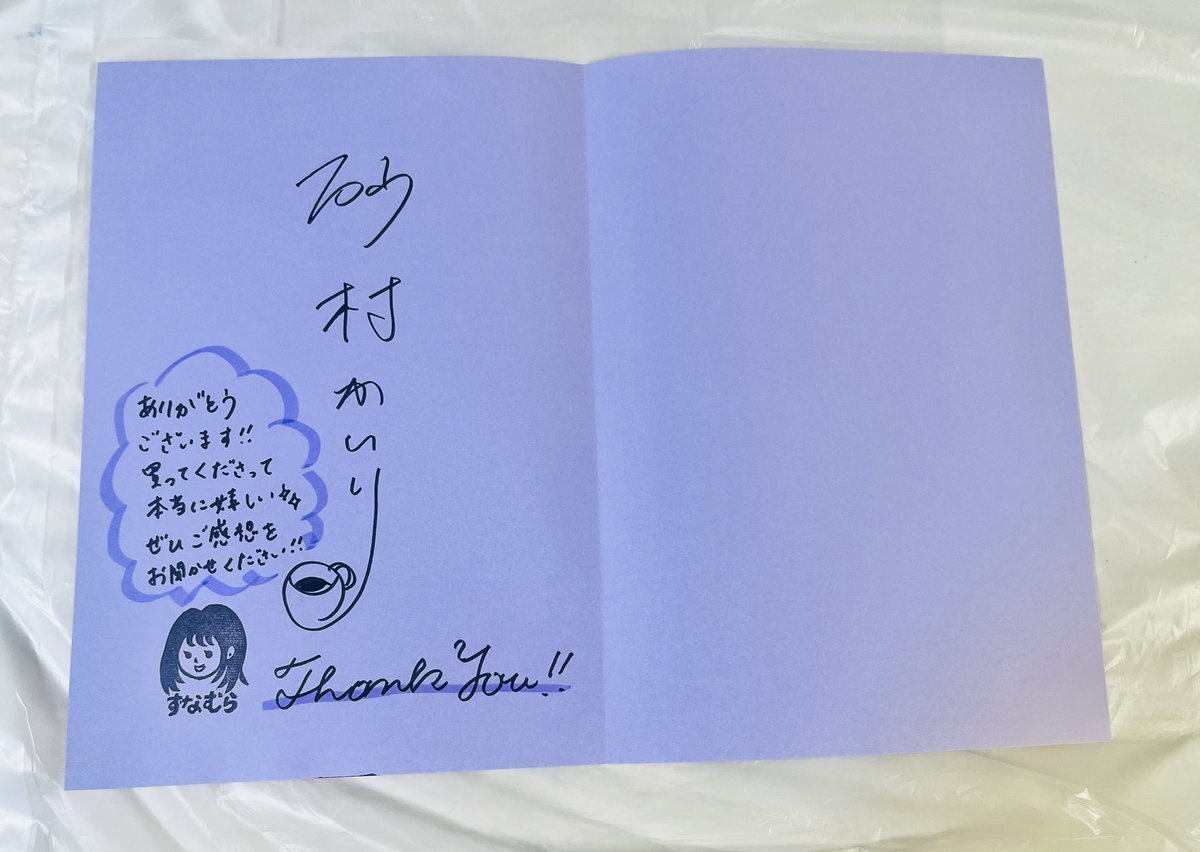 砂村かいり
ありがとう
ございます!!
買ってくださって
本当に嬉しい
ぜひご感想を
お聞かせください!!
すなむら
Thank You!!